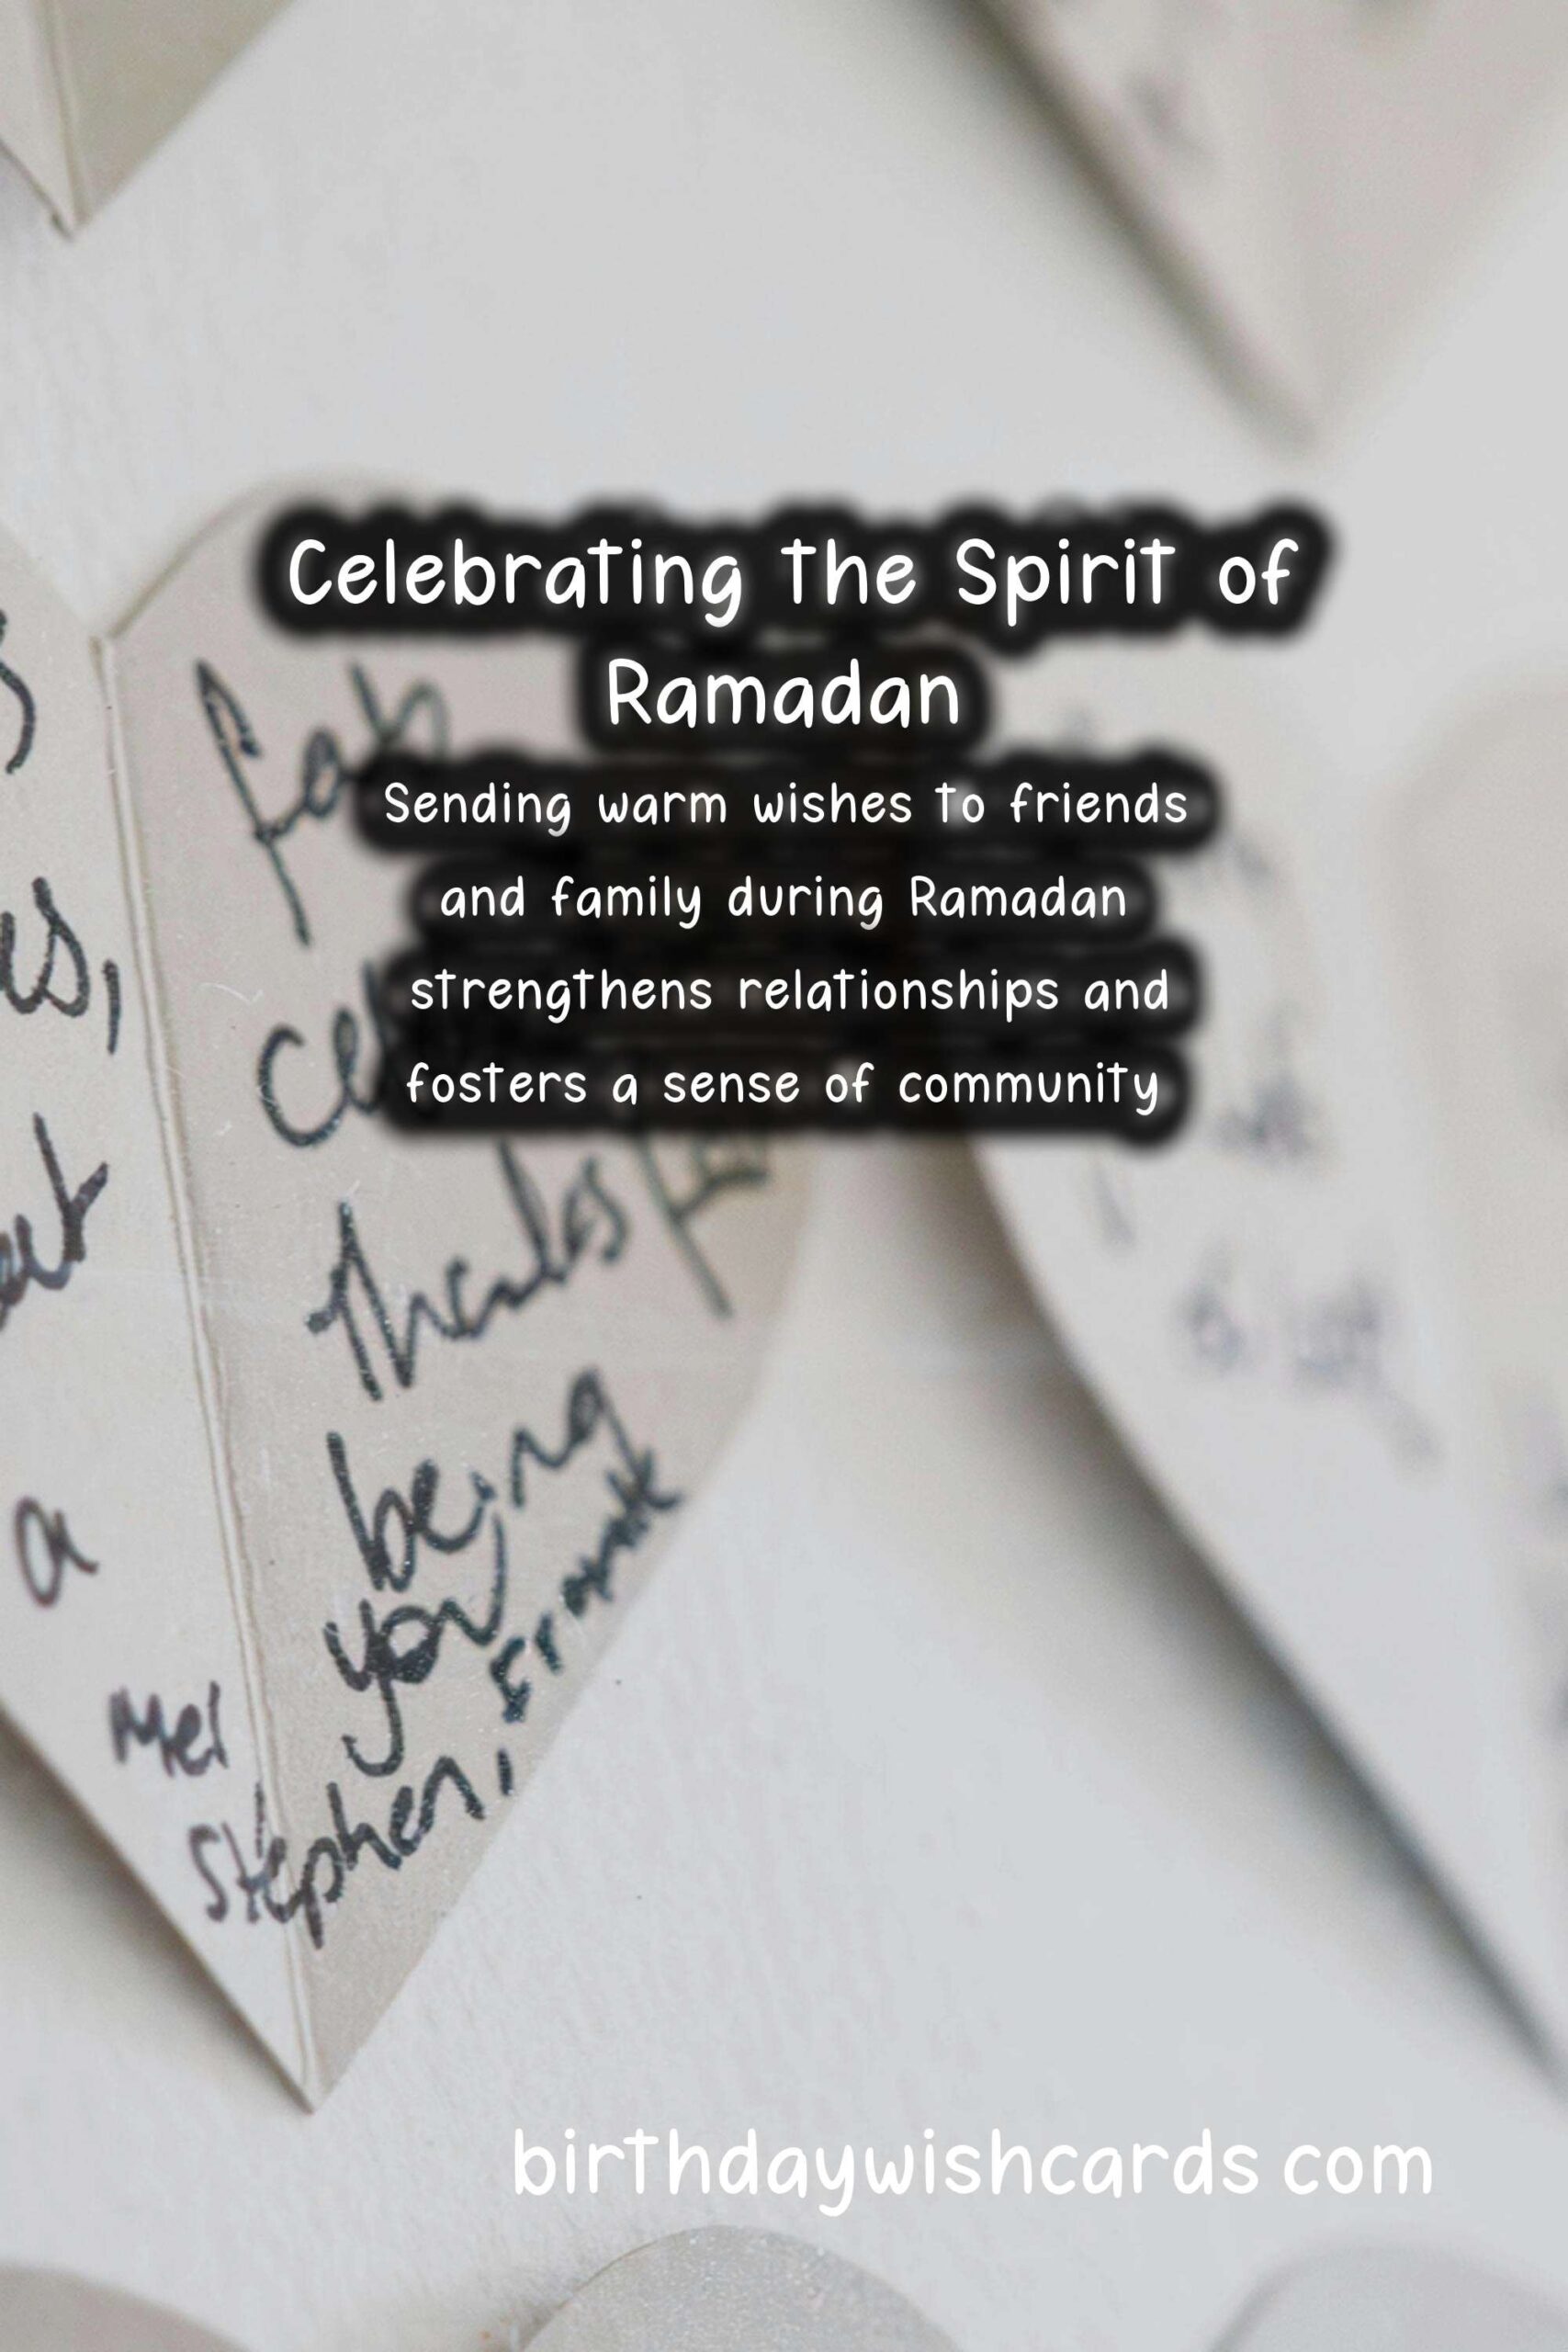 Celebrating the Spirit of
Ramadan
Sending warm wishes to friends
and family during Ramadan
strengthens relationships and
fosters a sense of community
fab
Thanks for
being
you
a
Mel
Stephen,
birthdaywishcards com